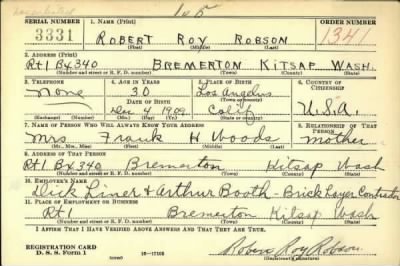 105
SERIAL NUMBER 1. NAME (Print) ORDER NUMBER
3331 ROBERT ROY ROBSON 1341
(First) (Middle) (Last)
2. ADDRESS (Print)
Rt 1 Bx 340 BREMERTON KITSAP WASH.
(Number and street or R. F. D. number) (Town) (County) (State)
3. TELEPHONE 4. AGE IN YEARS 5. PLACE OF BIRTH 6. COUNTRY OF CITIZENSHIP
None 30 Los Angeles
DATE OF BIRTH (Town or county)
Dec 4 1909 Calif U.S.A.
(Exchange) (Number) (Mo.) (Day) (Yr.) (State or country)
7. NAME OF PERSON WHO WILL ALWAYS KNOW YOUR ADDRESS 8. RELATIONSHIP OF THAT PERSON
Mrs Frank H Woods mother
(Mr., Mrs., Miss) (First) (Middle) (Last)
9. ADDRESS OF THAT PERSON
Rt 1 Bx 340 Bremerton Kitsap Wash
(Number and street or R. F. D. number) (Town) (County) (State)
10. EMPLOYER'S NAME
Dick Liner & Arthur Booth - Brick Layer Contractor
11. PLACE OF EMPLOYMENT OR BUSINESS
Rt 1 Bremerton Kitsap Wash
(Number and street or R. F. D. number) (Town) (County) (State)
I AFFIRM THAT I HAVE VERIFIED ABOVE ANSWERS AND THAT THEY ARE TRUE.
REGISTRATION CARD
D. S. S. Form 1 (over) 16-17105 Robert Roy Robson